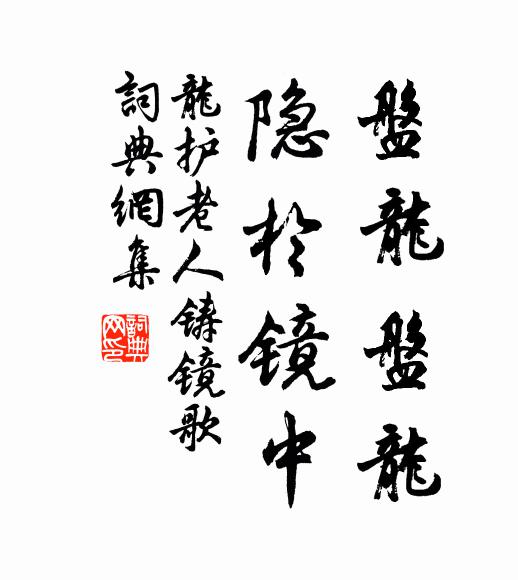 盤龍盤龍
隐於镜中
龍护老人铸镜歌
詞典網集
詞典网印